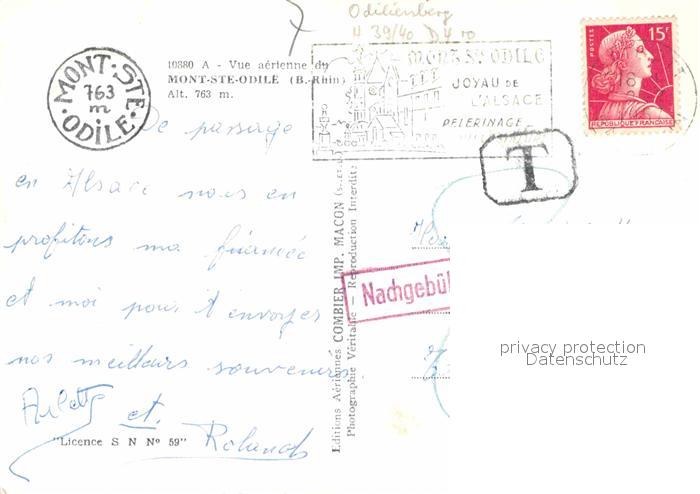 Odilienberg
H 39/40 D4 10
10380 A - Vue aérienne du
MONT-STE-ODILE (B.-Rhin)
Alt. 763 m.
MONT-STE
763
m
ODILE
MONT-STE ODILE
JOYAU DE
L'ALSACE
PELERINAGE
POSTES
15F
REPUBLIQUE FRANCAISE
T
De passage
en Alsace nous en
profitons ma fiancée
et moi pour t'envoyer
nos meilleurs souvenirs
Arlette et
Roland
"Licence S N N° 59"
Editions Aériennes COMBIER IMP. MACON
Photographie Véritable - Reproduction Interdite
Nachgebüh
privacy protection
Datenschutz